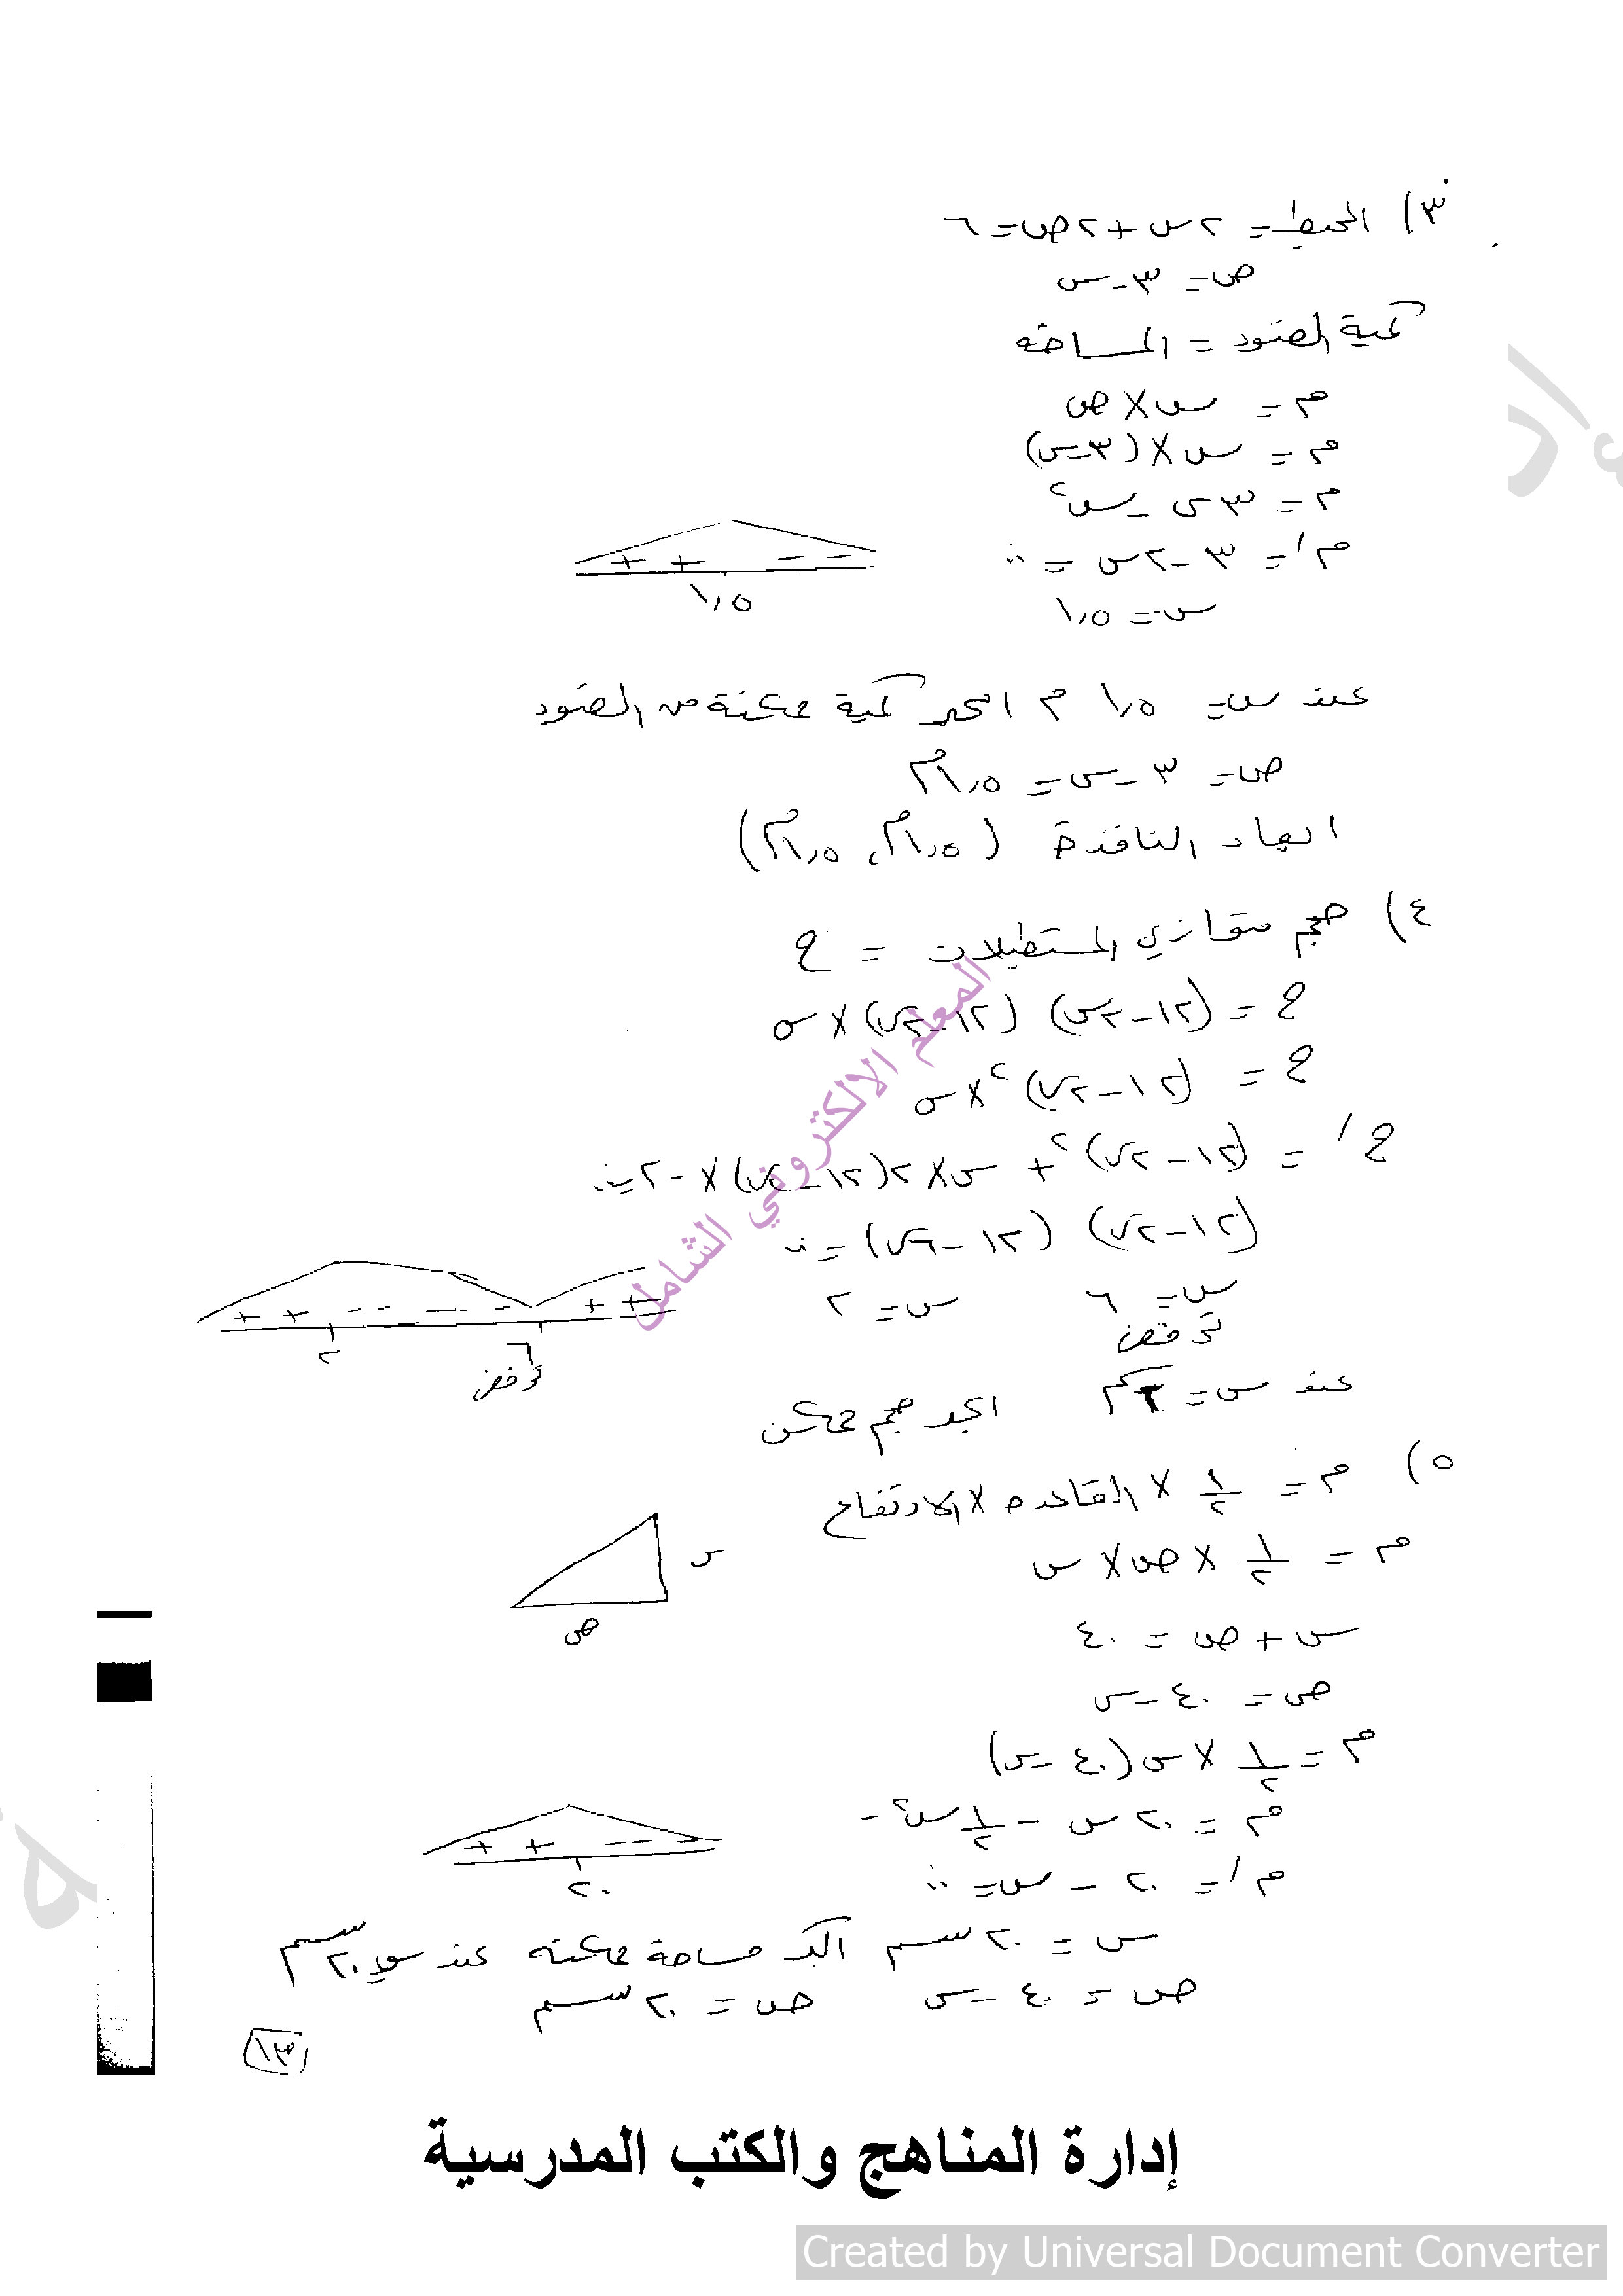 ٣) المحيط = ٢س + ٢ص = ٦
ص = ٣ - س
كمية الضوء = المساحة
م = س × ص
م = س × (٣ - س)
م = ٣س - س٢
م / = ٣ - ٢س = ٠
س = ١,٥
+ + - -
١,٥
عند س = ١,٥ م اكبر كمية ممكنة من الضوء
ص = ٣ - س = ١,٥م
ابعاد النافذة (١,٥م ، ١,٥م)
٤) حجم متوازي المستطيلات = ح
ح = (١٢ - ٢س) (١٢ - ٢س) × س
ح = (١٢ - ٢س)٢ × س
ح / = (١٢ - ٢س)٢ + س × ٢(١٢ - ٢س) × -٢ = ٠
(١٢ - ٢س) (١٢ - ٦س) = ٠
س = ٦ س = ٢
ترفض
+ + - - - - - + +
٢ ٦
ترفض
عند س = ٢م اكبر حجم ممكن
٥) م = ١/٢ × القاعدة × الارتفاع
م = ١/٢ × ص × س
س
ص
س + ص = ٤٠
ص = ٤٠ - س
م = ١/٢ × س (٤٠ - س)
م = ٢٠س - ١/٢ س٢ -
م / = ٢٠ - س = ٠
+ + - - -
٢٠
س = ٢٠ سم اكبر مساحة ممكنه عند س = ٢٠ سم
ص = ٤٠ - س ص = ٢٠ سم
١٣
المعلم الالكتروني الشامل
إدارة المناهج والكتب المدرسية
Created by Universal Document Converter